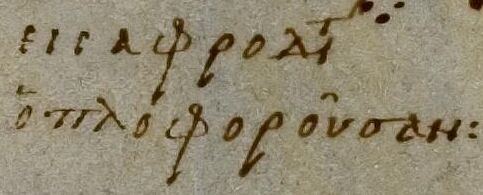 εις αφροδιτ
ὁπλοφοροῦσαν: